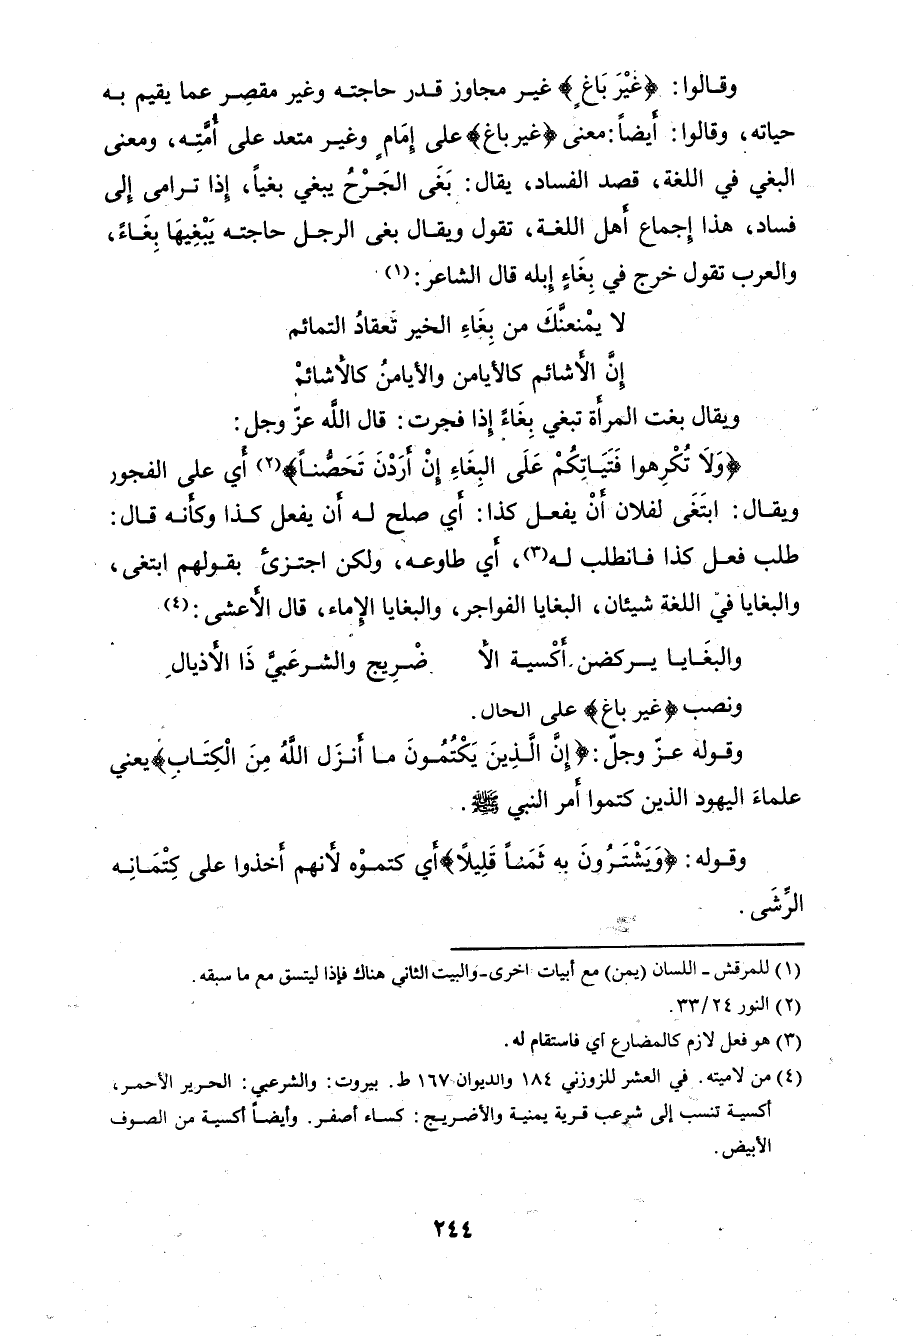 وقالوا: ﴿غَيْرَ بَاغٍ﴾ غير مجاوز قدر حاجته وغير مقصِر عما يقيم به
حياته، وقالوا: أَيضاً: معنى ﴿غير باغ﴾ على إمَامٍ وغير متعد على أُمَّتِه، ومعنى
البغي في اللغة، قصد الفساد، يقال: بَغَى الجَرْحُ يبغي بغياً، إذا ترامى إلى
فساد، هذا إجماع أَهل اللغة، تقول ويقال بغى الرجل حاجته يَبْغِيهَا بِغَاءً،
والعرب تقول خرج في بِغَاءِ إبله قال الشاعر: (١)
لا يمْنعنَّكَ من بِغَاءِ الخير تَعقادُ التمائم
إنَّ الأَشائم كالأيامن والأيامنُ كالأَشائمْ
ويقال بغت المرأَة تبغي بِغَاءً إذا فجرت: قال اللَّه عزّ وجل:
﴿وَلَا تُكْرِهوا فَتَيَاتِكُمْ عَلَى البِغَاءِ إنْ أَرَدْنَ تَحَصُّناً﴾(٢) أَي على الفجور
ويقال: ابتَغَى لفلان أَنْ يفعل كذا: أَي صلح له أَن يفعل كذا وكأَنه قال:
طلب فعل كذا فانطلب له(٣)، أَي طاوعه، ولكن اجتزئ بقولهم ابتغى،
والبغايا في اللغة شيئان، البغايا الفواجر، والبغايا الإماء، قال الأَعشى: (٤)
والبغَايا يركضن أَكْسية الأ ضْرِيج والشرعَبيَّ ذَا الأَذيال
ونصب ﴿غير باغ﴾ على الحال.
وقوله عزّ وجلّ: ﴿إنَّ الَّذِينَ يَكْتُمُونَ ما أَنزَل اللَّهُ مِنَ الْكِتَابِ﴾ يعني
علماءَ اليهود الذين كتموا أَمر النبي ﷺ.
وقوله: ﴿وَيَشْتَرُونَ به ثَمَناً قَلِيلًا﴾ أَي كتموْه لأَنهم أَخذوا على كِتْمَانِه
الرِّشَى.
(١) للمرقش ـ اللسان (يمن) مع أبيات اخرى ـ والبيت الثاني هناك فإذا ليتسق مع ما سبقه.
(٢) النور ٢٤/٣٣.
(٣) هو فعل لازم كالمضارع أي فاستقام له.
(٤) من لاميته. في العشر للزوزني ١٨٤ والديوان ١٦٧ ط. بيروت: والشرعبي: الحرير الأحمر،
أكسية تنسب إلى شرعب قرية يمنية والأضريج: كساء أصفر. وأيضاً أكسية من الصوف
الأبيض.
٢٤٤